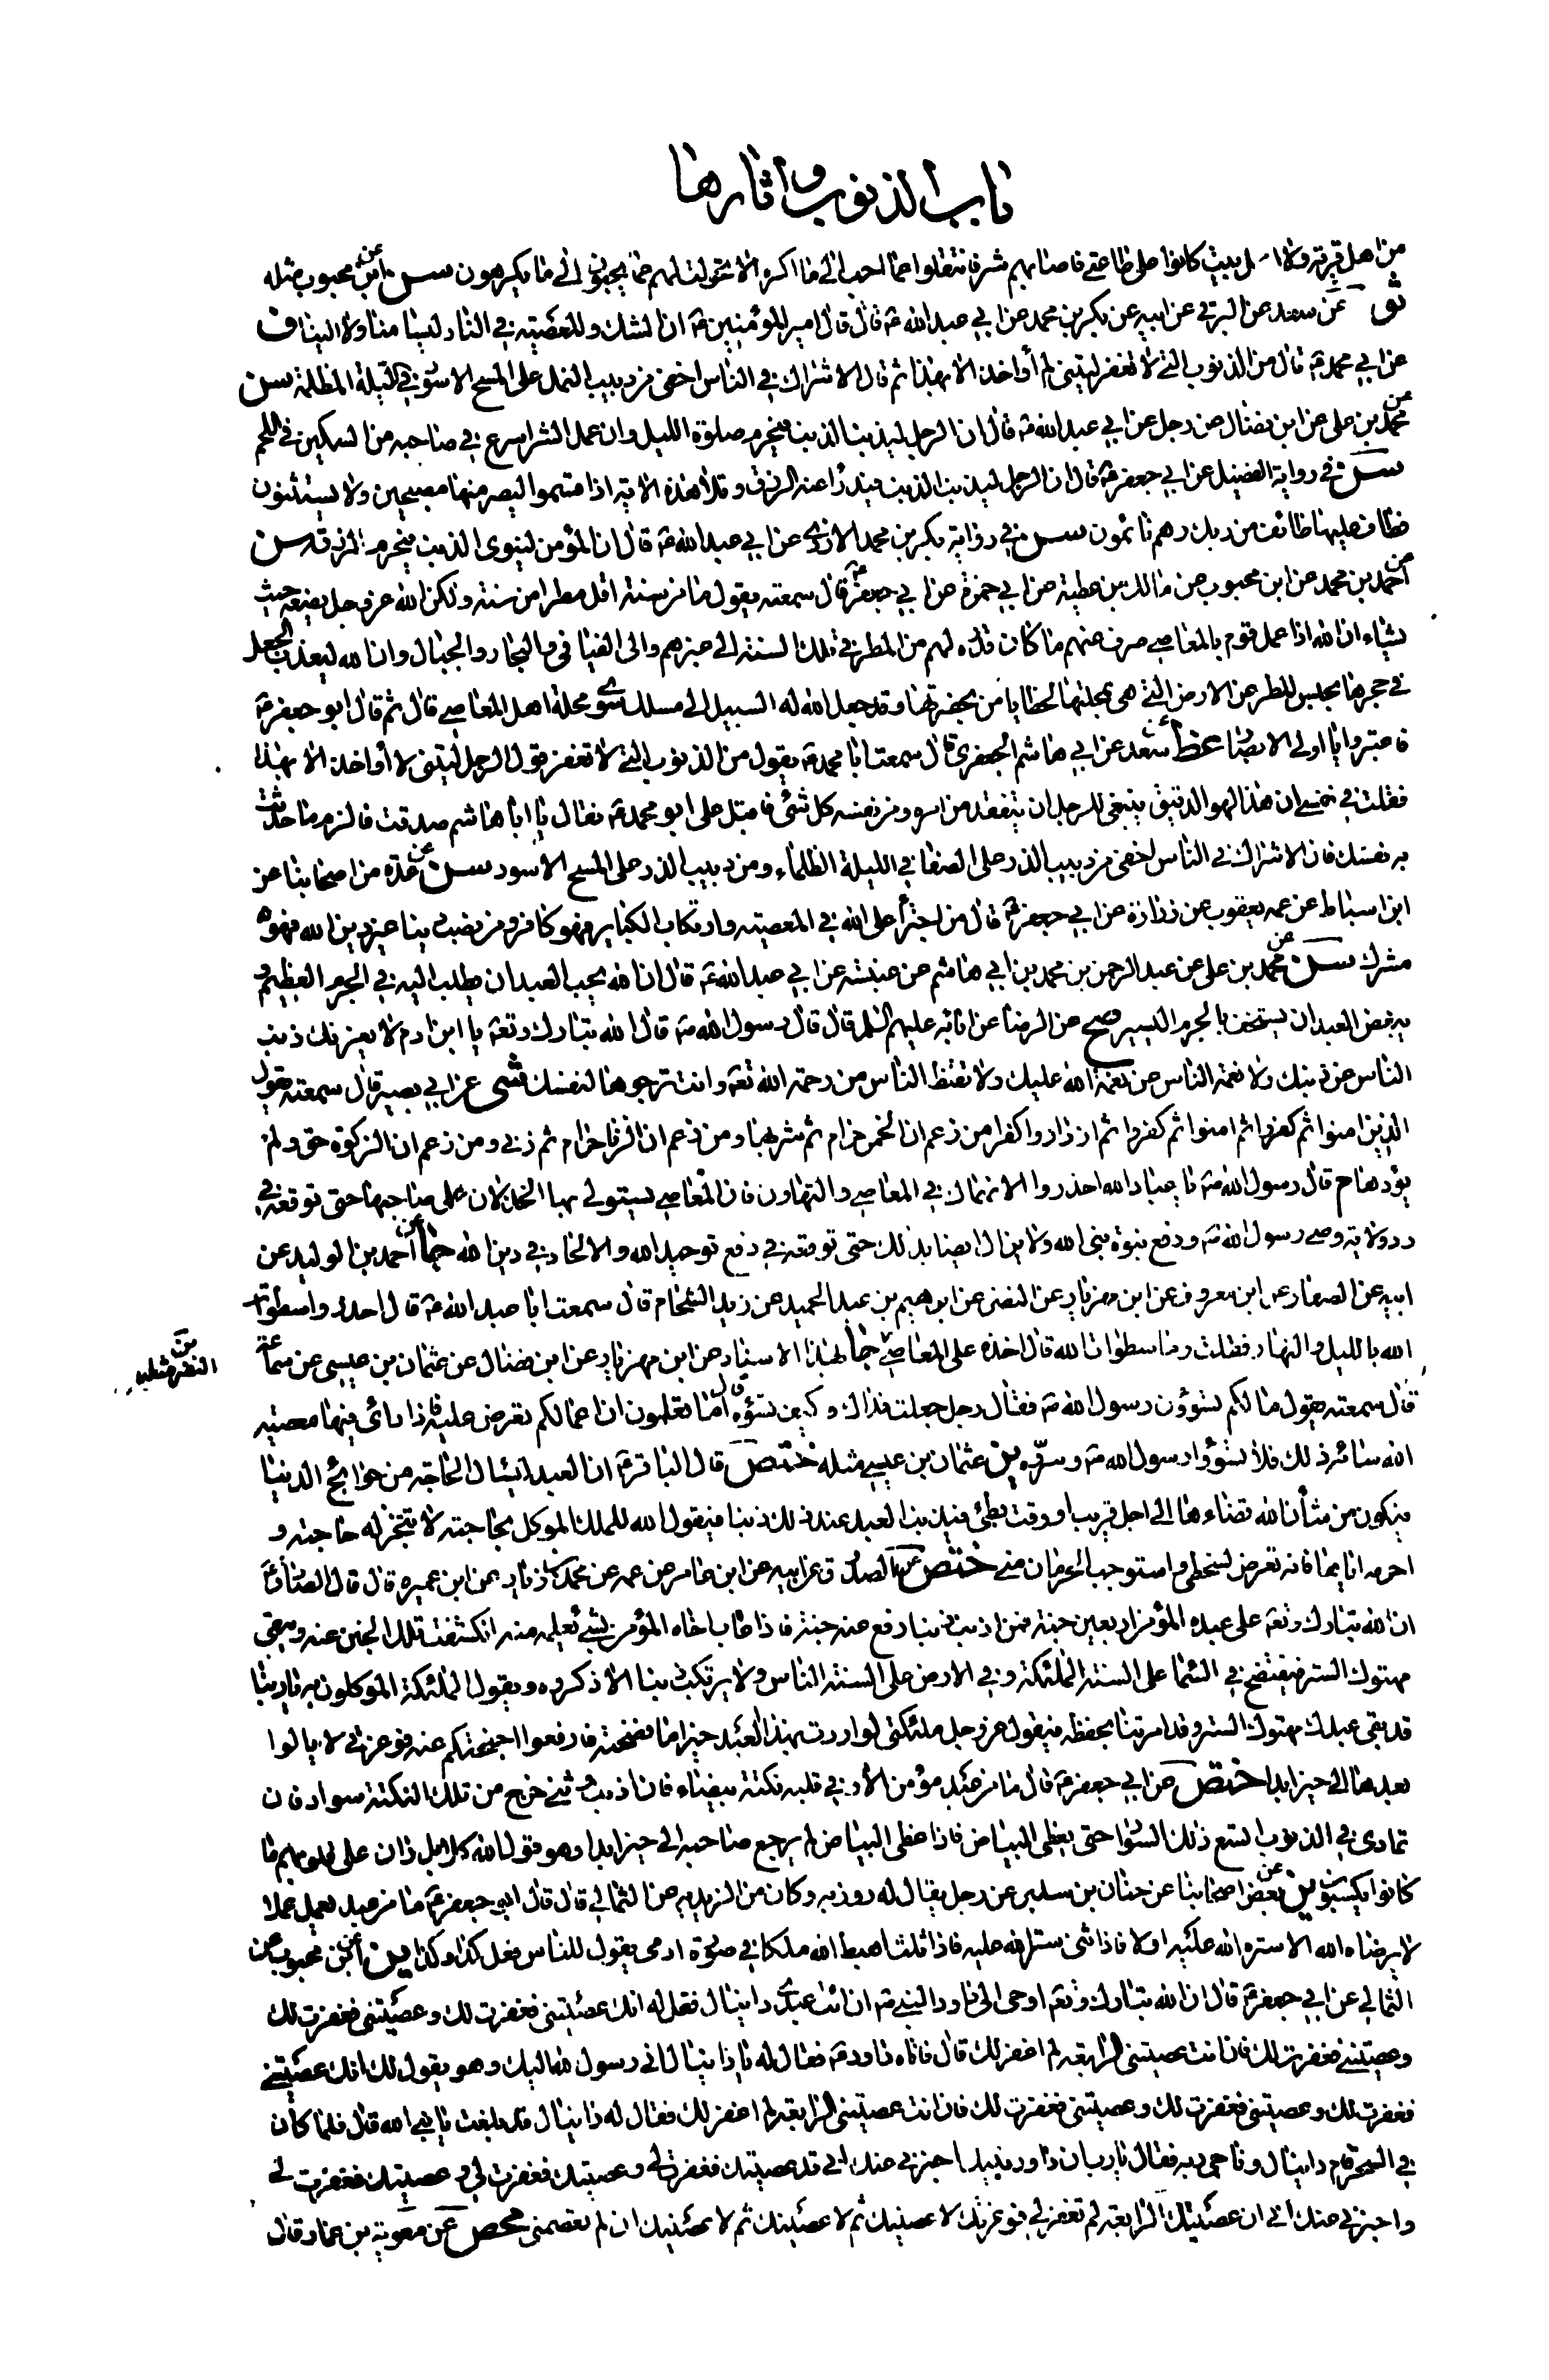 باب الذنوب و اثارها
من اهل قرية ولا اهل بيت كانوا على طاعتي فاصابهم شر فانتقلوا عما احب الى ما اكره الا تحولت لهم عما يحبون الى ما يكرهون سن عن ابن محبوب مثله
ثو عن سعد عن البرقي عن ابيه عن بكر بن محمد عن ابي عبد الله ع قال قال امير المؤمنين ع ان الشك والمعصية في النار ليسا منا ولا الينا ف
عن ابي محمد ع قال من الذنوب التي لا تغفر ليتني لم أواخذ الا بهذا ثم قال الاشراك في الناس اخفى من دبيب النمل على المسح الاسود في الليلة المظلمة سن
عن محمد بن علي عن ابن فضال عن رجل عن ابي عبد الله ع قال ان الرجل ليذنب الذنب فيحرم صلوة الليل وان عمل الشر اسرع في صاحبه من السكين في اللحم
سن في رواية الفضيل عن ابي جعفر ع قال ان الرجل ليذنب الذنب فيدرأ عنه الرزق وتلا هذه الاية اذا قسموا ليصرمنها مصبحين ولا يستثنون
فطاف عليها طائف من ربك وهم نائمون سن في رواية بكر بن محمد الازدي عن ابي عبد الله ع قال ان المؤمن لينوي الذنب فيحرم الرزق سن
عن احمد بن محمد عن ابن محبوب عن مالك بن عطية عن ابي حمزة عن ابي جعفر ع قال سمعته يقول ما من سنة اقل مطرا من سنة ولكن الله عز وجل يضعه حيث
يشاء ان الله اذا عمل قوم بالمعاصي صرف عنهم ما كان قدره لهم من المطر في تلك السنة الى غيرهم والى الفيافي والبحار والجبال وان الله ليعذب الجعل
في جحرها بحبس المطر عن الارض التي هي بمحلتها لخطايا من بحضرتها وقد جعل الله له السبيل الى مسلك سوى محلة اهل المعاصي قال ثم قال ابو جعفر ع
فاعتبروا يا اولي الابصار غط سعد عن ابي هاشم الجعفري قال سمعت ابا محمد ع يقول من الذنوب التي لا تغفر قول الرجل ليتني لا أواخذ الا بهذا
فقلت في نفسي ان هذا لهو الدقيق ينبغي للرجل ان يتفقد من امره ومن نفسه كل شئ فاقبل على ابو محمد ع فقال يا ابا هاشم صدقت فالزم ما حدثت
به نفسك فان الاشراك في الناس اخفى من دبيب الذر على الصفا في الليلة الظلماء ومن دبيب الذر على المسح الاسود سن عن عدة من اصحابنا عن
ابن اسباط عن عمه يعقوب عن زرارة عن ابي جعفر ع قال من اجترأ على الله في المعصية وارتكاب الكبائر فهو كافر ومن نصب دينا غير دين الله فهو
مشرك سن عن محمد بن علي عن عبد الرحمن بن محمد بن ابي هاشم عن عنبسة عن ابي عبد الله ع قال ان الله يحب العبد ان يطلب اليه في الجرم العظيم و
يبغض العبد ان يستخف بالجرم اليسير صح عن الرضا عن ابائه عليهم السلم قال قال رسول الله ص قال الله تبارك وتعه يا ابن ادم لا يغرنك ذنب
الناس عن ذنبك ولا نعمة الناس عن نعمة الله عليك ولا تقنط الناس من رحمة الله تعه وانت ترجوها لنفسك شي عن ابي بصير قال سمعته يقول
الذين امنوا ثم كفروا ثم امنوا ثم كفروا ثم ازدادوا كفرا من زعم ان الخمر حرام ثم شربها ومن زعم ان الزنا حرام ثم زنى ومن زعم ان الزكوة حق ولم
يؤدها م قال رسول الله ص يا عباد الله احذروا الانهماك في المعاصي والتهاون فان المعاصي يستولي بها الخذلان على صاحبها حتى توقعه في
رد ولاية وصي رسول الله ص ودفع نبوة نبي الله ولا يزال ايضا بذلك حتى توقعه في دفع توحيد الله والالحاد في دين الله جا عن احمد بن الوليد عن
ابيه عن الصفار عن ابن معروف عن ابن مهزيار عن النضر عن ابرهيم بن عبد الحميد عن زيد الشحام قال سمعت ابا عبد الله ع قال احذروا سطوات
الله بالليل والنهار فقلت وما سطوات الله قال اخذه على المعاصي جا بهذا الاسناد عن ابن مهزيار عن ابن فضال عن عثمان بن عيسى عن سماعة
ين عن النضر مثله
قال سمعته يقول ما لكم تسوؤن رسول الله ص فقال رجل جعلت فداك وكيف نسوؤه قال اما تعلمون ان اعمالكم تعرض عليه فاذا رائ فيها معصية
الله سائه ذلك فلا تسوؤا رسول الله ص وسروه ين عثمان بن عيسى مثله ختص قال الباقر ع ان العبد ليسال الحاجة من حوائج الدنيا
فيكون من شأن الله قضاءها الى اجل قريب او وقت بطئ فيذنب العبد عند ذلك ذنبا فيقول الله للملك الموكل بحاجته لا تنجز له حاجته و
احرمه اياها فانه تعرض لسخطي واستوجب الحرمان مني ختص عن الصدوق عن ابيه عن ابن عامر عن عمه عن محمد بن زياد عن ابن عميرة قال قال الصادق ع
ان الله تبارك وتعه على عبده المؤمن اربعين جنة فمن اذنب ذنبا رفع عنه جنة فاذا عاب اخاه المؤمن بشئ يعلمه منه انكشفت تلك الجنن عنه ويبقى
مهتوك الستر فيفتضح في السماء على السنة الملئكة وفي الارض على السنة الناس ولا يرتكب ذنبا الا ذكروه ويقول الملئكة الموكلون به يا ربنا
قد بقي عبدك مهتوك الستر وقد امرتنا بحفظه فيقول عز وجل ملئكتي لو اردت بهذا العبد خيرا ما فضحته فارفعوا اجنحتكم عنه فو عزتي لا يالوا
بعدها الى خير ابدا ختص عن ابي جعفر ع قال ما من عبد مؤمن الا وفي قلبه نكتة بيضاء فان اذنب وثنى خرج من تلك النكتة سواد فان
تمادى في الذنوب اتسع ذلك السواد حتى يغطي البياض فاذا غطى البياض لم يرجع صاحبه الى خير ابدا وهو قول الله كلا بل ران على قلوبهم ما
كانوا يكسبون ين عن بعض اصحابنا عن حنان بن سدير عن رجل يقال له روزبه وكان من الزيدية عن الثمالي قال قال ابو جعفر ع ما من عبد يعمل عملا
لا يرضاه الله الا ستره الله عليه اولا فاذا ثنى ستر الله عليه فاذا ثلث اهبط الله ملكا في صورة ادمي يقول للناس فعل كذا وكذا ين عن ابن محبوب عن
الثمالي عن ابي جعفر ع قال ان الله تبارك وتعه اوحى الى داود النبي ع ان ائت عبدي دانيال فقل له انك عصيتني فغفرت لك وعصيتني فغفرت لك
وعصيتني فغفرت لك فان انت عصيتني الرابعة لم اغفر لك قال فاتاه داود ع فقال له يا دانيال اني رسول الله اليك وهو يقول لك انك عصيتني
فغفرت لك وعصيتني فغفرت لك وعصيتني فغفرت لك فان انت عصيتني الرابعة لم اغفر لك فقال له دانيال قد بلغت يا نبي الله قال فلما كان
في السحر قام دانيال وناجى ربه فقال يا رب ان داود نبيك اخبرني عنك اني قد عصيتك فغفرت لي وعصيتك فغفرت لي وعصيتك فغفرت لي
واخبرني عنك اني ان عصيتك الرابعة لم تغفر لي فو عزتك لاعصينك ثم لاعصينك ثم لاعصينك ان لم تعصمني محص عن معوية بن عمار قال